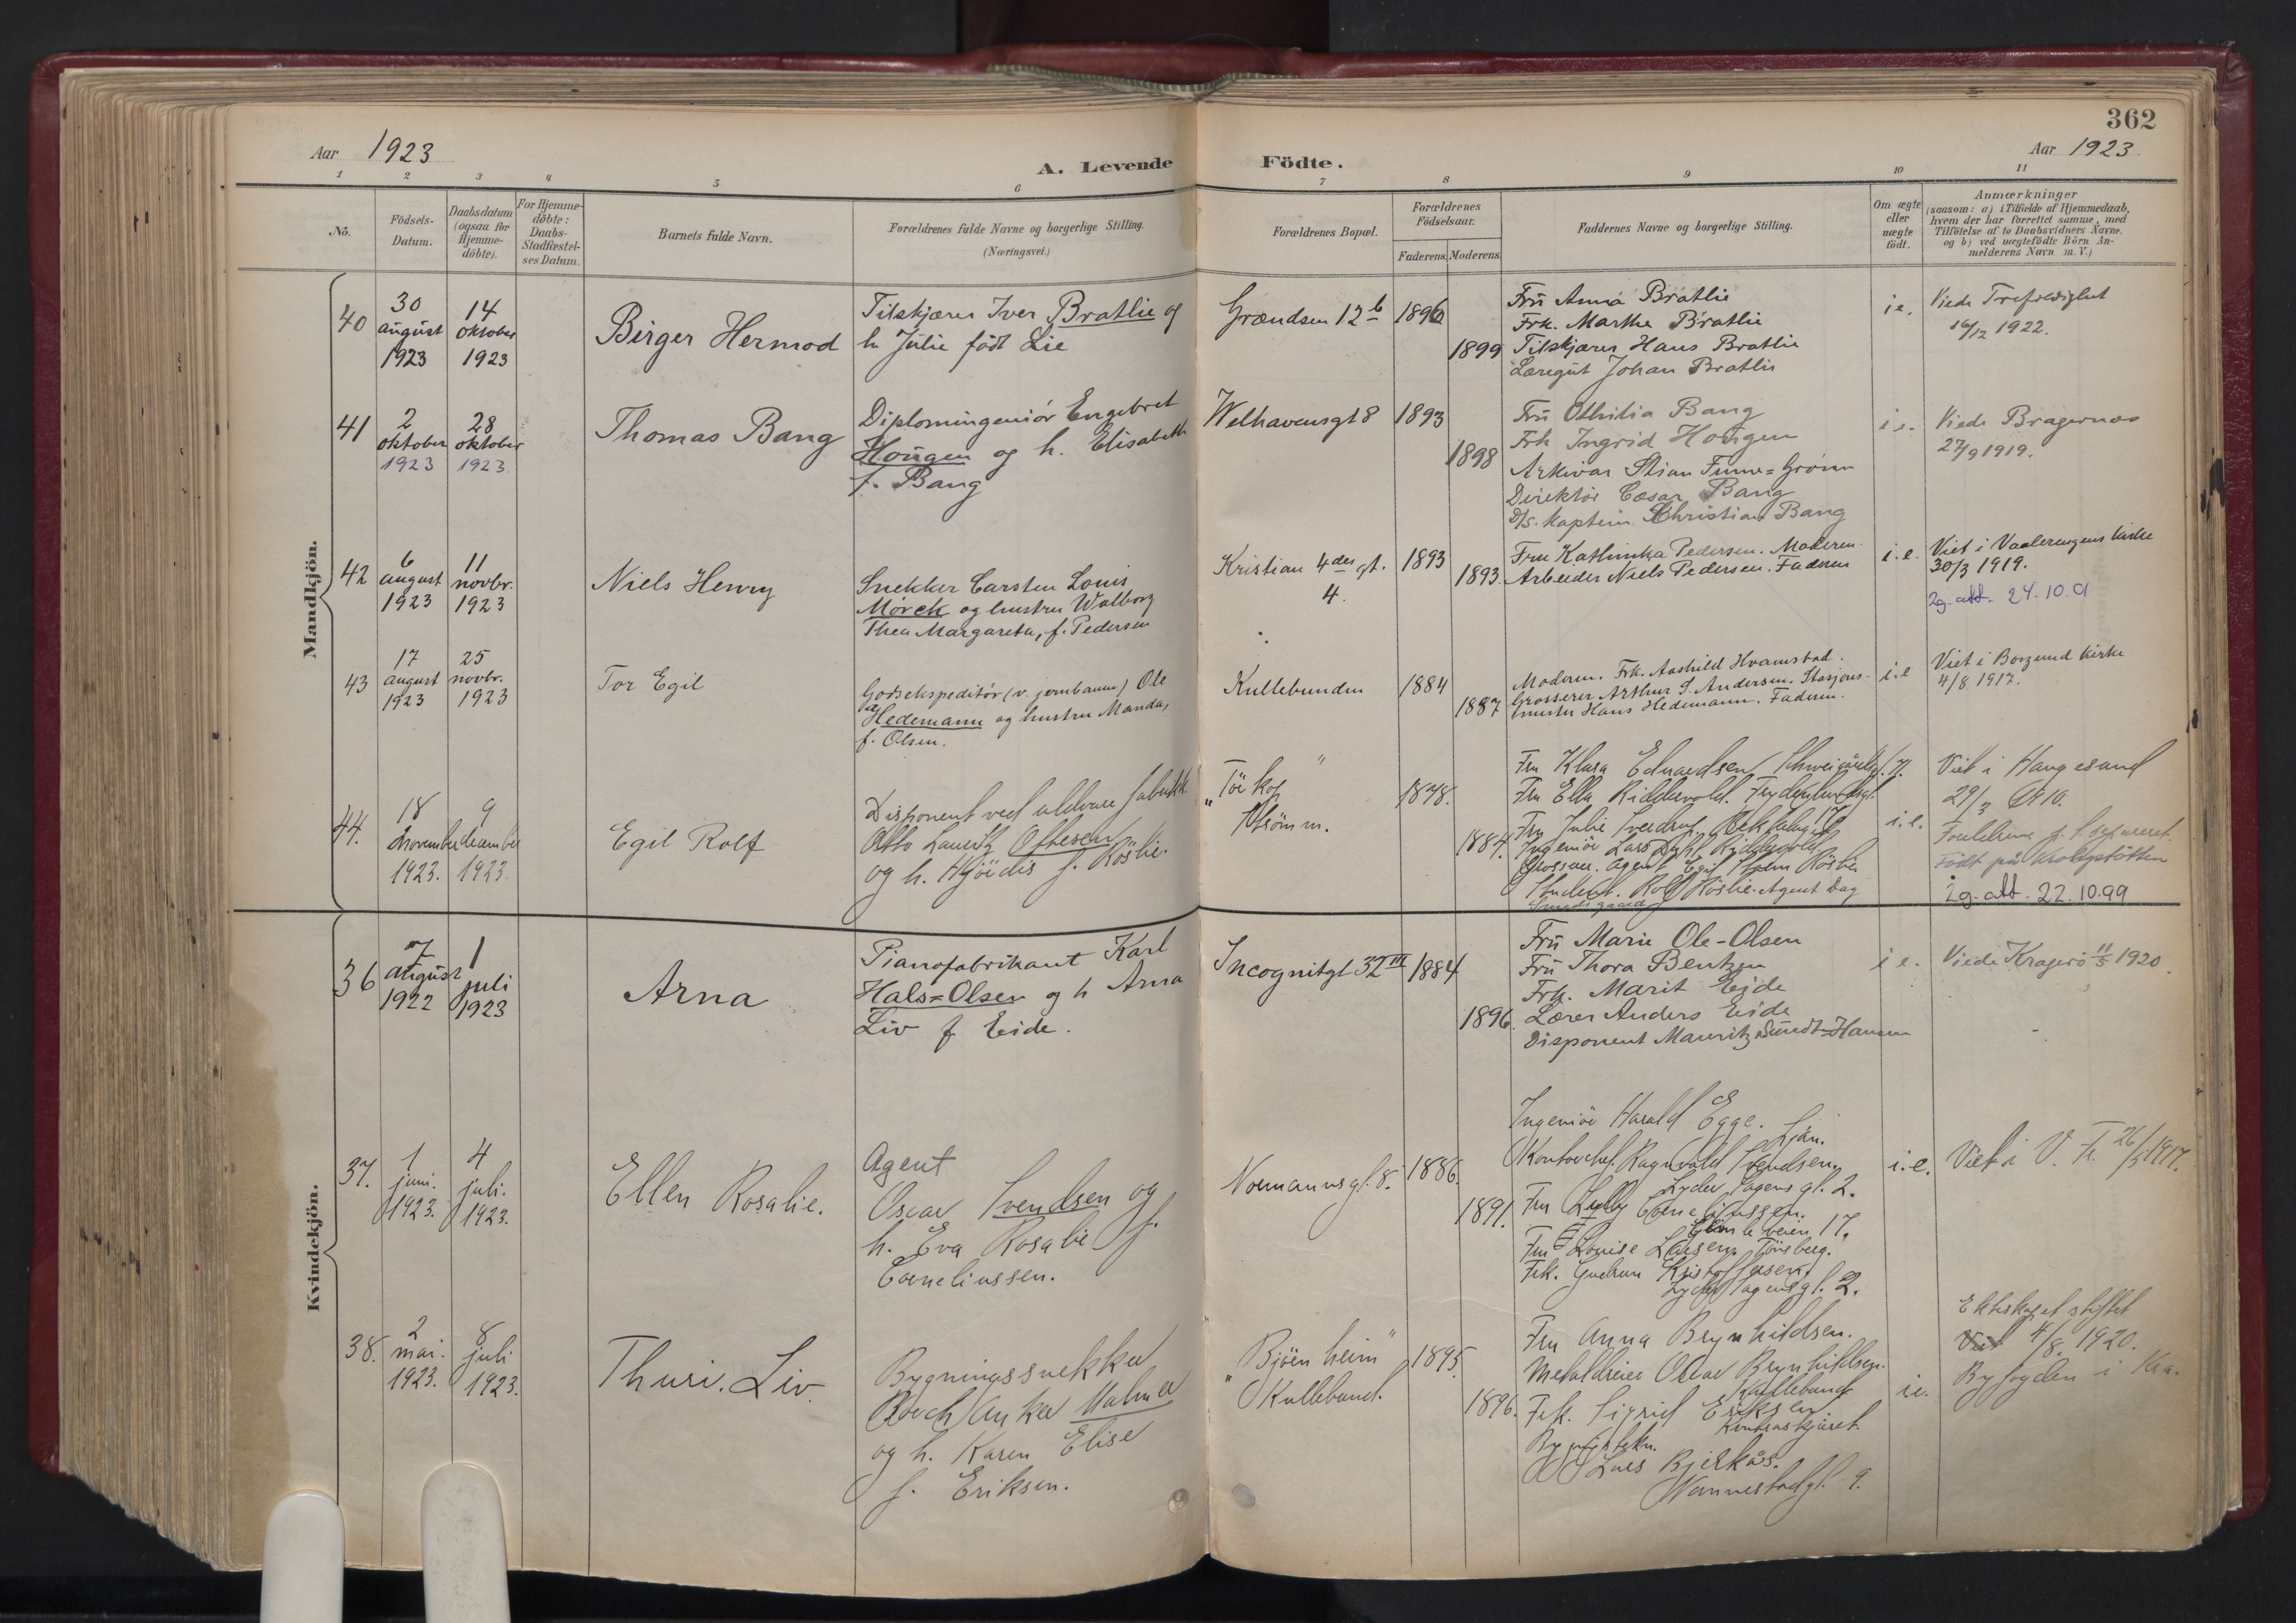 362
Aar 1923
Aar 1923.
A. Levende Födte.
1 2 3 4 5 6 7 8 9 10 11
No.
Födsels-
Datum.
Daabsdatum
(ogsaa for
Hjemme-
döbte).
For Hjemme-
döbte:
Daabs-
Stadfæstel-
ses Datum.
Barnets fulde Navn.
Forældrenes fulde Navne og borgerlige Stilling.
(Næringsvei.)
Forældrenes Bopæl.
Forældrenes
Födselsaar.
Faderens. Moderens.
Faddernes Navne og borgerlige Stilling.
Om ægte
eller
uægte
födt.
Anmærkninger
(saasom: a) i Tilfælde af Hjemmedaab,
hvem der har forrettet samme, med
Tilföielse af to Daabsvidners Navne.
og b) ved uægtefödte Börn An-
melderens Navn m. V.)
Mandkjön.
40
30
august
1923
14
oktober
1923
Birger Hermod
Tilskjærer Iver Bratlie og
h. Julie födt Lie
Grændsen 12 b
1896
1899
Frü Anna Bratlie
Frk. Marthe Bratlie
Tilskjærer Hans Bratlie
Læregut Johan Bratlie
i e.
Viede Trefoldighet
16/12 1922.
41
2
oktober
1923
28
oktober
1923
Thomas Bang
Diplomingeniör Engebret
Hougen og h. Elisabeth
f. Bang
Welhavensgt 8
1893
1898
Frü Othilia Bang
Frk Ingrid Hougen
Arkivar Stian Finne=Grönn
Direktör Cæsar Bang
D/S. kaptein Christian Bang
i e.
Viede Bragernæs
27/9 1919.
42
6
august
1923
11
novbr.
1923
Niels Henry
Snekker Carsten Louis
Mörck og hustru Walborg
Thea Margareta, f. Pedersen
Kristian 4des gt.
4.
1893
1893.
Fru Kathinka Pedersen. Moderen.
Arbeider Niels Pedersen. Faderen
i. e.
Viet i Vaalerengens kirke
30/3 1919.
lg. att. 24.10.01
43
17
august
1923
25
novbr.
1923
Tor Egil
Godsekspeditör (v. jernbanen) Ole
Hedemann og hustru Manda,
f. Olsen.
Kullebunden
1884
1887
Moderen. Frk. Aashild Hvamstad.
Grosserer Arthur S. Andersen. Stasjons-
mester Hans Hedemann. Faderen.
i. e
Viet i Borgund kirke
4/8 1917.
44.
18
november
1923.
9
december
1923.
Egil Rolf
Disponent ved
Otto Lauritz Oftesen
og h. Hjördis f. Röslie.
1878.
1884.
Fru Klara Eduardsen
Fru Ella Riddervold.
Fru Julie Sverdrup
Ingeniör Lars Dahl Riddervold
Grosserer. Agent Egil Röslie
Student. Rolf Röslie. Agent Dag
i. e.
Viet i Haugesund
29/3 1910.
Forældrene f. t. separeret.
Födt på Krohgstötten
lg. att. 22.10.99
Kvindekjön.
36
7
august
1922
1
juli
1923
Arna
Pianofabrikant Karl
Hals=Olsen og h Arna
Liv f Eide.
Incognitgt 32 III
1884
1896.
Frü Marie Ole-Olsen
Frü Thora Bentzen
Frk. Marit Eide
Lærer Anders Eide
Disponent Mauritz Sundt-Hansen
i e.
Viede Kragerö 11/5 1920.
37.
1
juni.
1923.
4
juli.
1923.
Ellen Rosalie.
Agent
Oscar Svendsen og
h. Eva Rosalie f.
Corneliussen.
Normannsgt. 8.
1886.
1891.
Ingeniör Harald Egge. Ljan.
Kontorchef. Ragnvald Svendsen.
Lyder Sagens gt. 2.
Fru Lully Corneliussen.
Gamleveien 17.
Fru Louise Larsen. Tönsberg.
Frk. Gudrun Kristoffersen,
Lyder Sagensgt. 2.
i. e.
Viet i V. Fr. 26/5 1917.
38.
2
mai.
1923.
8
juli
1923.
Thuri. Liv.
Bygningssnekker
Anker Malm
og h. Karen Elise
f. Eriksen.
"Björnheim"
Kullebund.
1895.
1896.
Fru Anna Brynhildsen.
Metaldreier Oscar Brynhildsen.
Kullebund
Frk. Sigrid Eriksen.
Lars Bjerkås.
Wannestadgt. 9.
i. e.
Ekteskapet stiftet
Viet 4/8. 1920.
Byfogden i Kra.